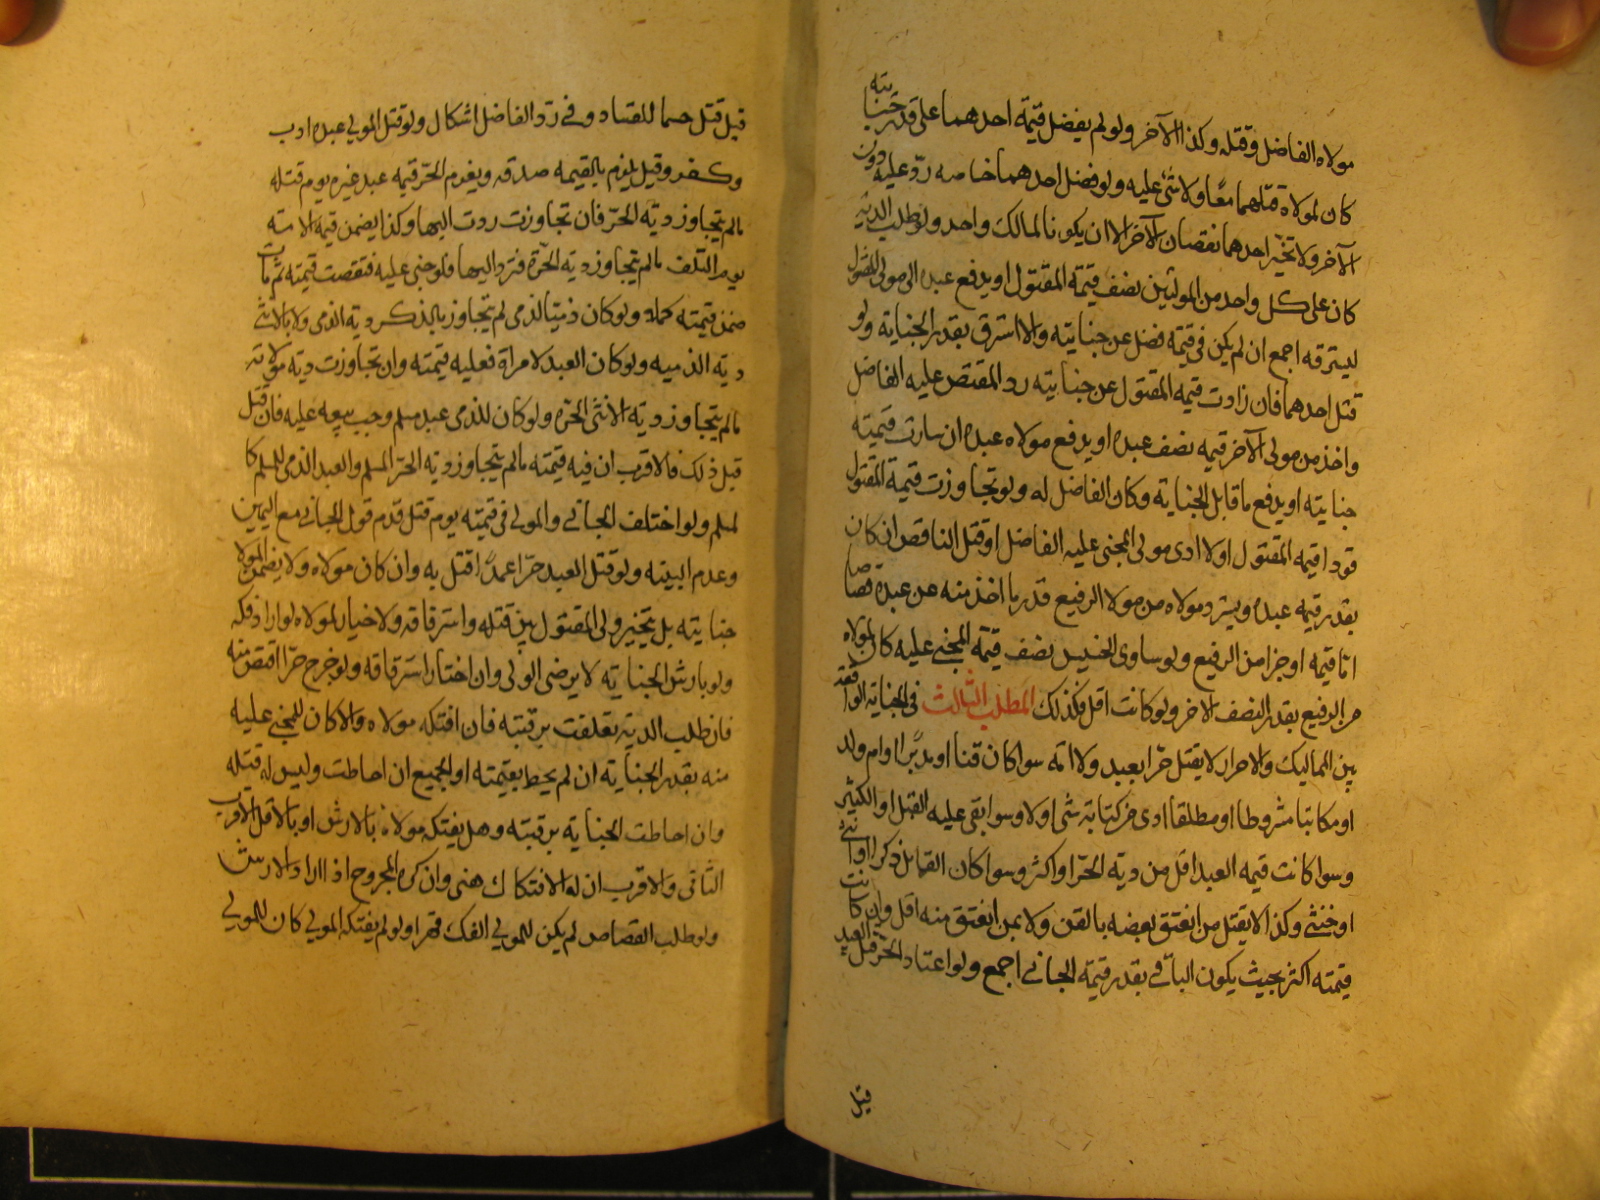 مولاه الفاضل وقتله وكذا الآخر ولو لم يفضل قيمة احدهما على قدر جنايته
كان لمولاه قتلهما معًا ولا شئ عليه ولو فضل احدهما خاصه ردّ عليه دون
الآخر ولا تخيّر احدهما نقصان الآخر الا ان يكونا لمالك واحد ولو طلب الديه
كان على كل واحد من الموليين نصف قيمة المقتول او يدفع عبده الى مولى المقتول
ليسترقه اجمع ان لم يكن في قيمه فضل عن جنايته والا استرق بقدر الجنايه ولو
قتل احدهما فان زادت قيمه المقتول عن جنايته رد المقتص عليه الفاضل
واخذ من مولى الآخر قيمه نصف عبده او يدفع مولاه عبده ان ساوت قيمته
جنايته او يدفع ما قابل الجنايه وكان الفاضل له ولو تجاوزت قيمة المقتول
قودا قيمه المقتول اولا ادى مولى المجنى عليه الفاضل او قتل الناقص ان كان
بقدر قيمه عبده ويسترد مولاه من مولا الرفيع قدر ما اخذ منه عن عبده قصاصا
اما قيمه او جزا من الرفيع ولو ساوى الخسيس نصف قيمة المجني عليه كان لمولاه
من الرفيع بقدر النصف الاخر ولو كانت اقل فكذلك المطلب الثالث في الجنايه الواقعه
بين المماليك والاحرار لا يقتل حرّ بعبد ولا امه سوا كان قنا او مدبّرا او ام ولد
او مكاتبا مشروطا او مطلقا ادى من كتابته شئ اولا وسوا بقى عليه القليل او الكثير
وسوا كانت قيمه العبد اقل من ديه الحرّ او اكثر وسوا كان القاتل ذكرا او انثى
او خنثى وكذا لا يقتل من انعتق بعضه بالقن ولا بمن انعتق منه اقل وان كانت
قيمته اكثر بحيث يكون الباقى بقدر قيمة الجاني اجمع ولو اعتاد الحر قتل العبيد
قتل
قيل قتل حسما للفساد وفي رد الفاضل اشكال ولو قتل المولى عبده ادب
وكفر وقيل يلزم بالقيمه صدقه ويغرم الحرّ قيمه عبد غيره يوم قتله
مالم يتجاوز ديّه الحرّ فان تجاوزت ردت اليها وكذا يضمن قيمة الامه
يوم التلف مالم تتجاوز ديه الحرّة فترد اليها فلو جنى عليه فنقصت قيمته ثم مات
ضمن قيمته كملا ولو كان ذميّا لذمى لم يتجاوز بالذكر ديه الذمى ولا بالانثى
ديه الذميه ولو كان العبد لامراة فعليه قيمته وان تجاوزت ديه مولاته
مالم يتجاوز ديه الانثى الحرّه ولو كان للذمى عبد مسلم وجب بيعه عليه فان قتل
قبل ذلك فالاقرب ان فيه قيمته مالم يتجاوز ديه الحرّ المسلم والعبد الذمى للمسلم كا
لمسلم ولو اختلف الجاني والمولى في قيمته يوم قتل قدم قول الجاني مع اليمين
وعدم البينه ولو قتل العبد حرّا عمدًا قتل به وان كان مولاه ولا يضمن المولا
جنايته بل يتخير ولى المقتول بين قتله واسترقاقه ولا خيار لمولاه لو اراد فكه
ولو بارش الجنايه لا يرضى الولى وان اختار استرقاقه ولو جرح حرّا اقتص منه
فان طلب الديه تعلقت برقبته فان افتكه مولاه والا كان للمجني عليه
منه بقدر الجنايه ان لم يحط بقيمته او الجميع ان احاطت وليس له قتله
وان احاطت الجنايه برقبته وهل يفتكه مولاه بالارش او بالاقل الاقرب
الثانى والاقرب ان له الافتكاك هنى وان كره المجروح اذا اراد الارش
ولو طلب القصاص لم يكن للمولى الفك قهرا ولو لم يفتكه المولى كان للمولى